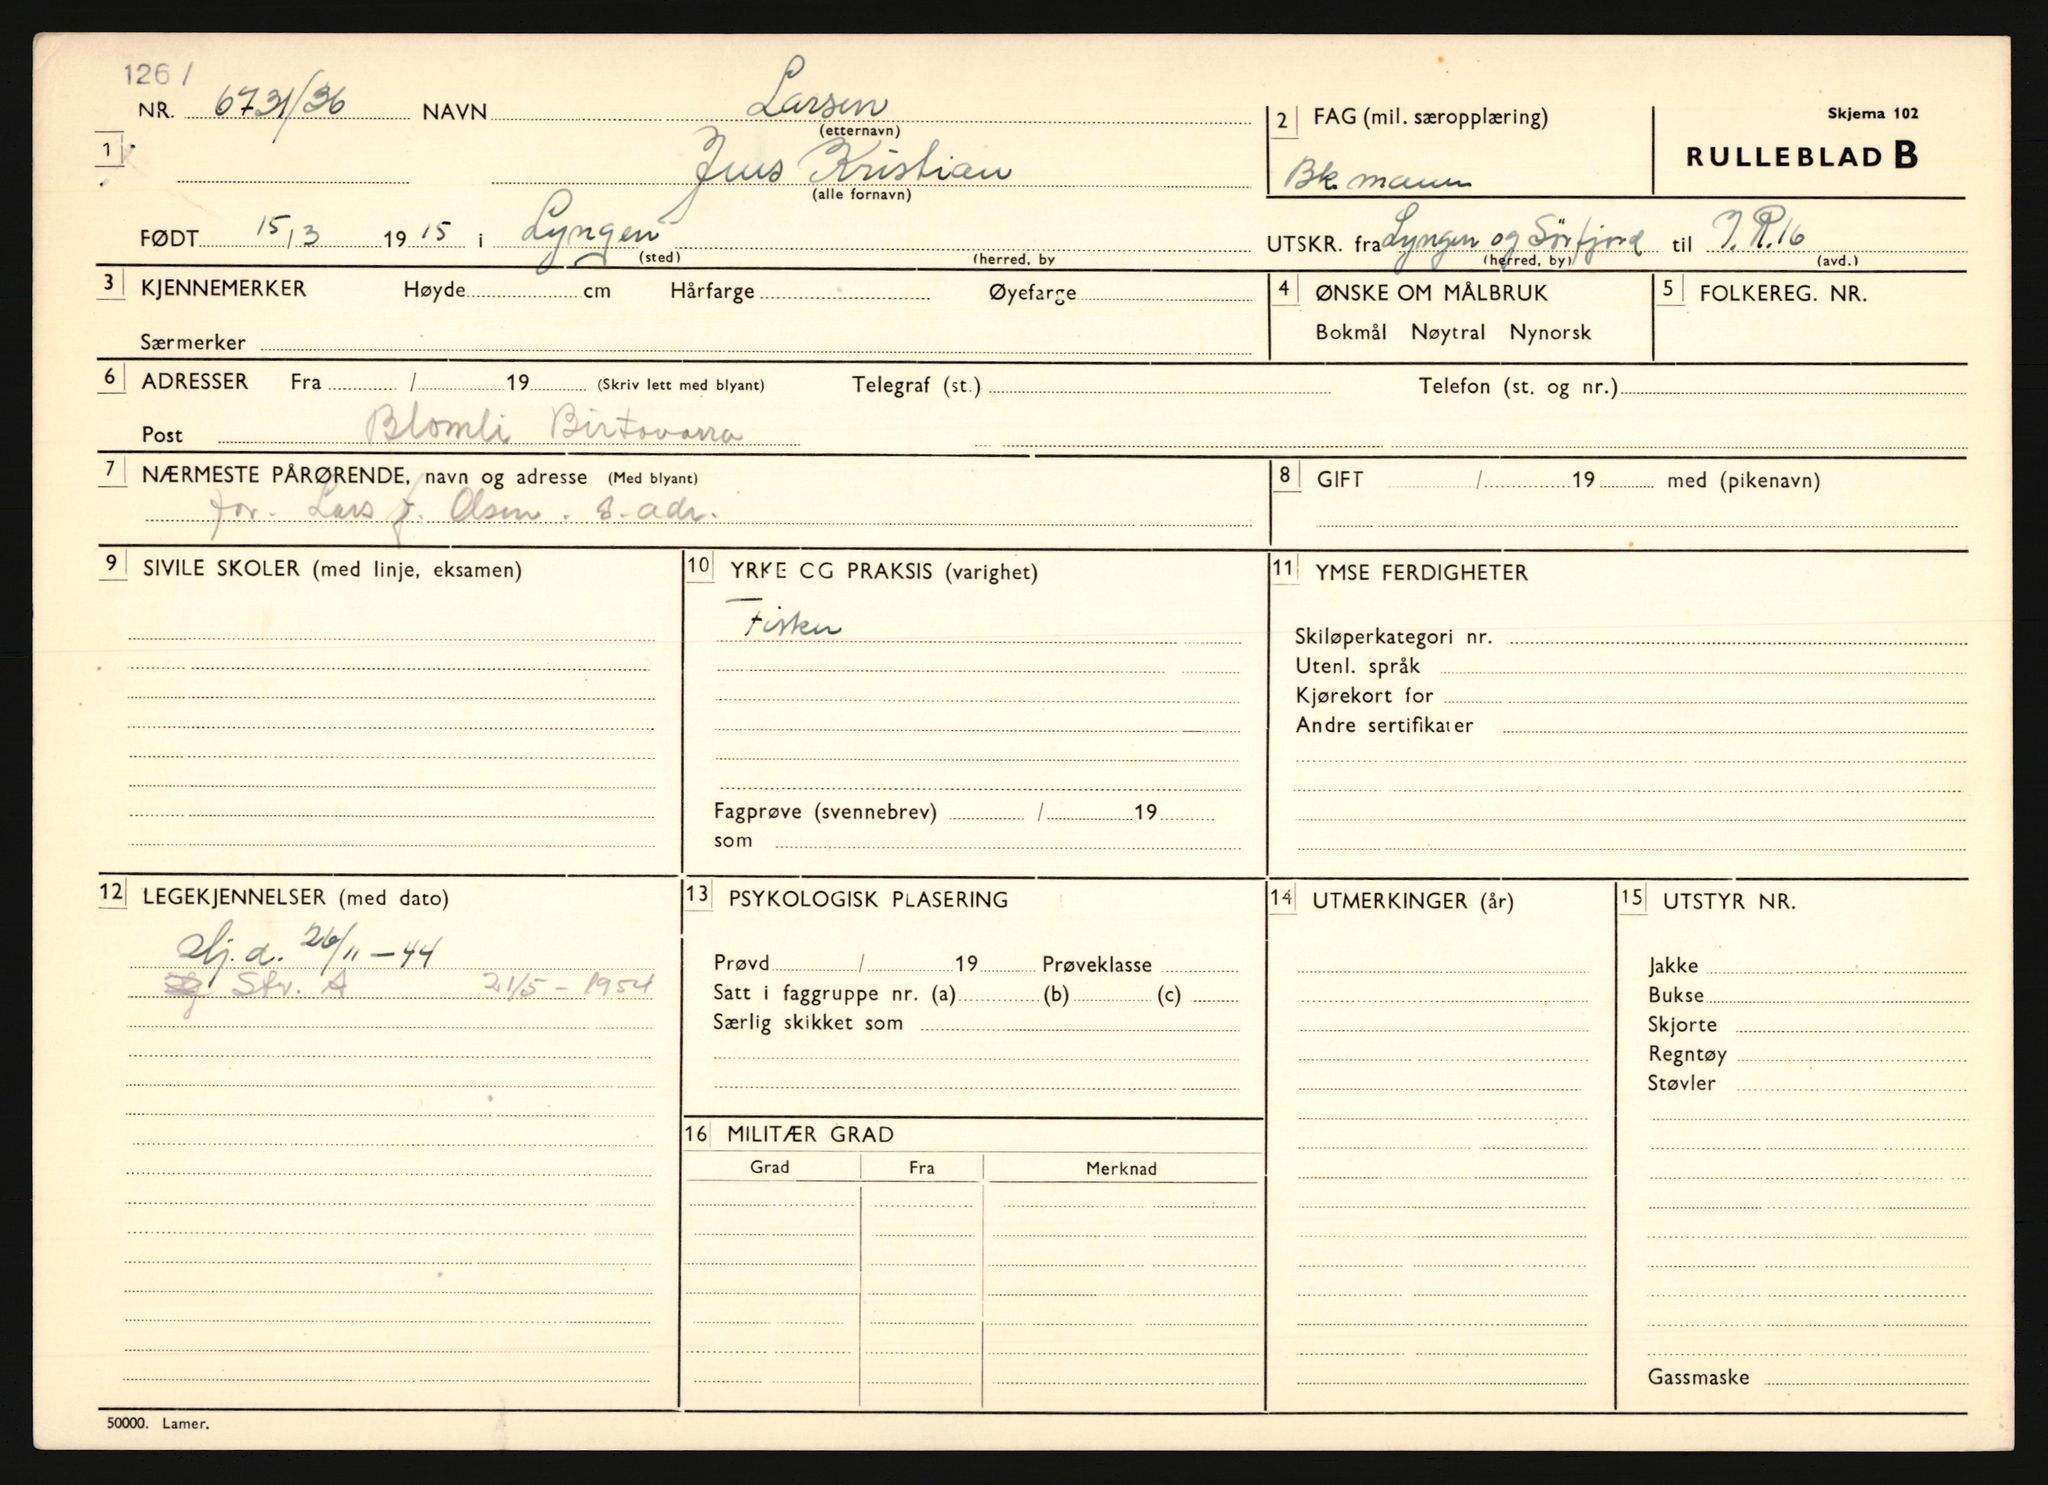 126 /
NR. 6731/36 NAVN Larsen
(etternavn)
2 FAG (mil. særopplæring)
Skjema 102
RULLEBLAD B
1
Jens Kristian
(alle fornavn)
Bk. mann
FØDT 15/3 1915 i Lyngen
(sted) (herred, by
UTSKR. fra Lyngen og Sörfjord til I.R.16
(herred, by) (avd.)
3 KJENNEMERKER Høyde cm Hårfarge Øyefarge
Særmerker
4 ØNSKE OM MÅLBRUK
Bokmål Nøytral Nynorsk
5 FOLKEREG. NR.
6 ADRESSER Fra / 19 (Skriv lett med blyant) Telegraf (st.) Telefon (st. og nr.)
Post Blomli Birtavarra
7 NÆRMESTE PÅRØRENDE, navn og adresse (Med blyant)
for. Lars J. Olsen. s. adr.
8 GIFT / 19 med (pikenavn)
9 SIVILE SKOLER (med linje, eksamen)
10 YRKE CG PRAKSIS (varighet)
Fisker
Fagprøve (svennebrev) / 19
som
11 YMSE FERDIGHETER
Skiløperkategori nr.
Utenl. språk
Kjørekort for
Andre sertifikater
12 LEGEKJENNELSER (med dato)
stj. d. 26/11-44
Str. A 21/5-1954
13 PSYKOLOGISK PLASERING
Prøvd / 19 Prøveklasse
Satt i faggruppe nr. (a) (b) (c)
Særlig skikket som
14 UTMERKINGER (år)
15 UTSTYR NR.
Jakke
Bukse
Skjorte
Regntøy
Støvler
Gassmaske
16 MILITÆR GRAD
Grad Fra Merknad
50000. Lamer.